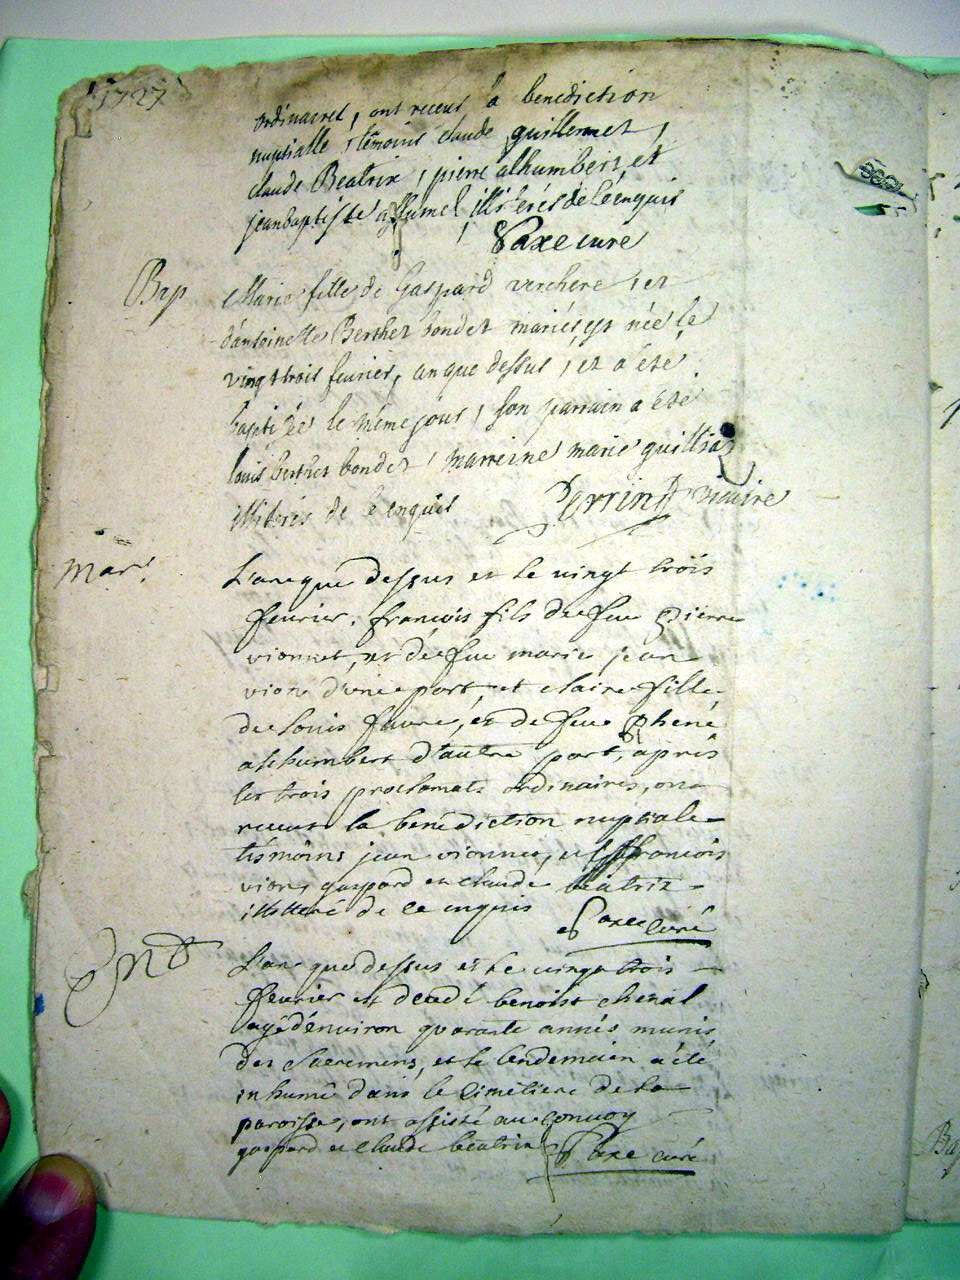 1727
ordinaires, ont receus la benediction
nuptialle, témoins claude guillermet,
claude Beatrix, pierre alhumbert, et
jeanbaptiste illiterés de ce enquis
Saxe curé
Bap
Marie fille de Gaspard verchere, et
d'antoinette Berthet bondet mariés est née le
vingt trois fevrier, an que dessus, et a été
baptizée le même jour, son parrain a été
louis berthet bondet, marreine marie guillia
illiterés de ce enquis
Perrin vicaire
Mar.
L'an que dessus et le vingt trois
fevrier, françois fils de feu pierre
vionnet, et de feu marie jean
vion d'une part, et claire fille
de louis favre, et de feue
alhumbert d'autre part, après
les trois proclamats ordinaires, ont
receus la benediction nuptiale
témoins jean vionnet, et françois
vion, gaspard et claude beatrix
illitteré de ce enquis
Saxe curé
L'an que dessus et le vingt trois
fevrier est decedé benoist cheval
agé d'environ quarante années munis
des sacremens, et le lendemain a été
inhumé dans le cimetiere de la
paroisse, ont assisté au convoy
gaspard et claude beatrix
Saxe curé
Bap